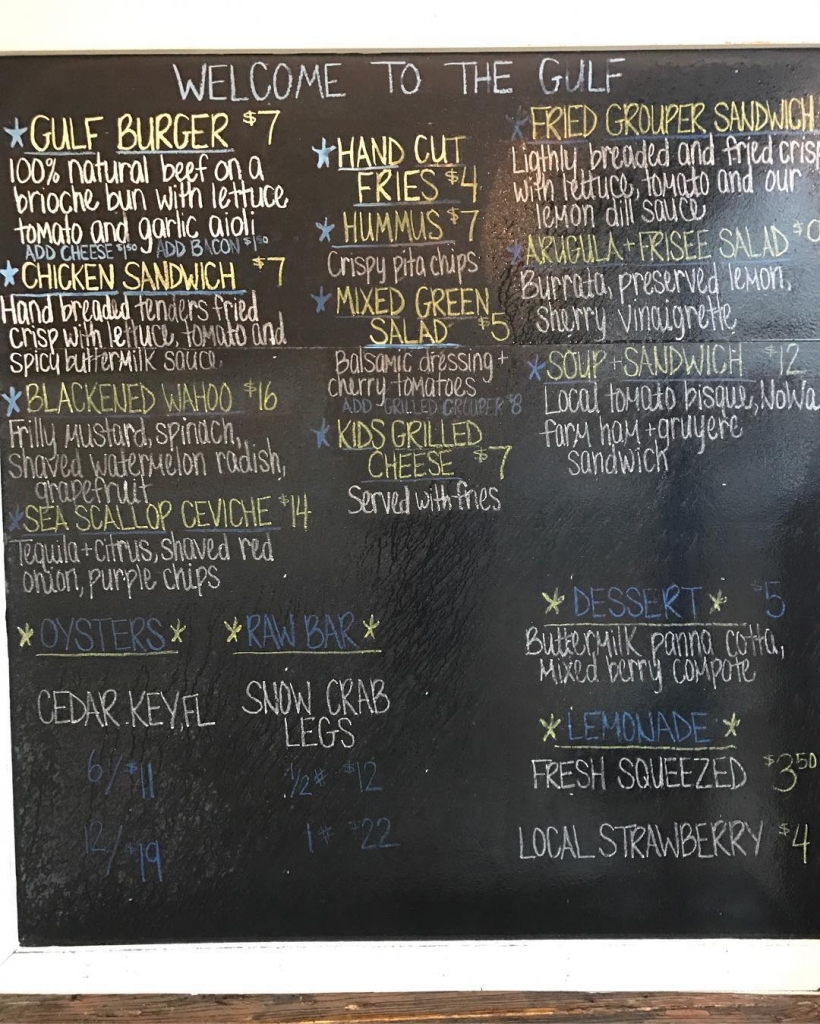 WELCOME TO THE GULF
GULF BURGER $7
100% natural beef on a
brioche bun with lettuce
tomato and garlic aioli
ADD CHEESE $1.50 ADD BACON $1.50
CHICKEN SANDWICH $7
Hand breaded tenders fried
crisp with lettuce, tomato and
spicy buttermilk sauce
BLACKENED WAHOO $16
Frilly mustard, spinach,
shaved watermelon radish,
grapefruit
SEA SCALLOP CEVICHE $14
Tequila + citrus, shaved red
onion, purple chips
HAND CUT
FRIES $4
HUMMUS $7
Crispy pita chips
MIXED GREEN
SALAD $5
Balsamic dressing +
cherry tomatoes
ADD GRILLED GROUPER $8
KIDS GRILLED
CHEESE $7
Served with fries
FRIED GROUPER SANDWICH
Ligthly breaded and fried crisp
with lettuce, tomato and our
lemon dill sauce
ARUGULA + FRISEE SALAD
Burrata, preserved lemon,
sherry vinaigrette
SOUP + SANDWICH $12
Local tomato bisque, NoWa
farm ham + gruyere
sandwich
OYSTERS
CEDAR KEY, FL
6/$11
12/$19
RAW BAR
SNOW CRAB
LEGS
1/2# $12
1# $22
DESSERT $5
Buttermilk panna cotta,
mixed berry compote
LEMONADE
FRESH SQUEEZED $3.50
LOCAL STRAWBERRY $4